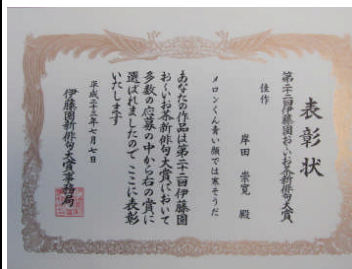 表彰状
第二十二回伊藤園おーいお茶新俳句大賞
佳作
岸田 崇寛 殿
メロンくん青い顔では寒そうだ
あなたの作品は第二十二回伊藤園
おーいお茶新俳句大賞において
多数の応募の中から右の賞に
選ばれましたのでここに表彰
いたします
平成二十三年七月七日
伊藤園新俳句大賞事務局